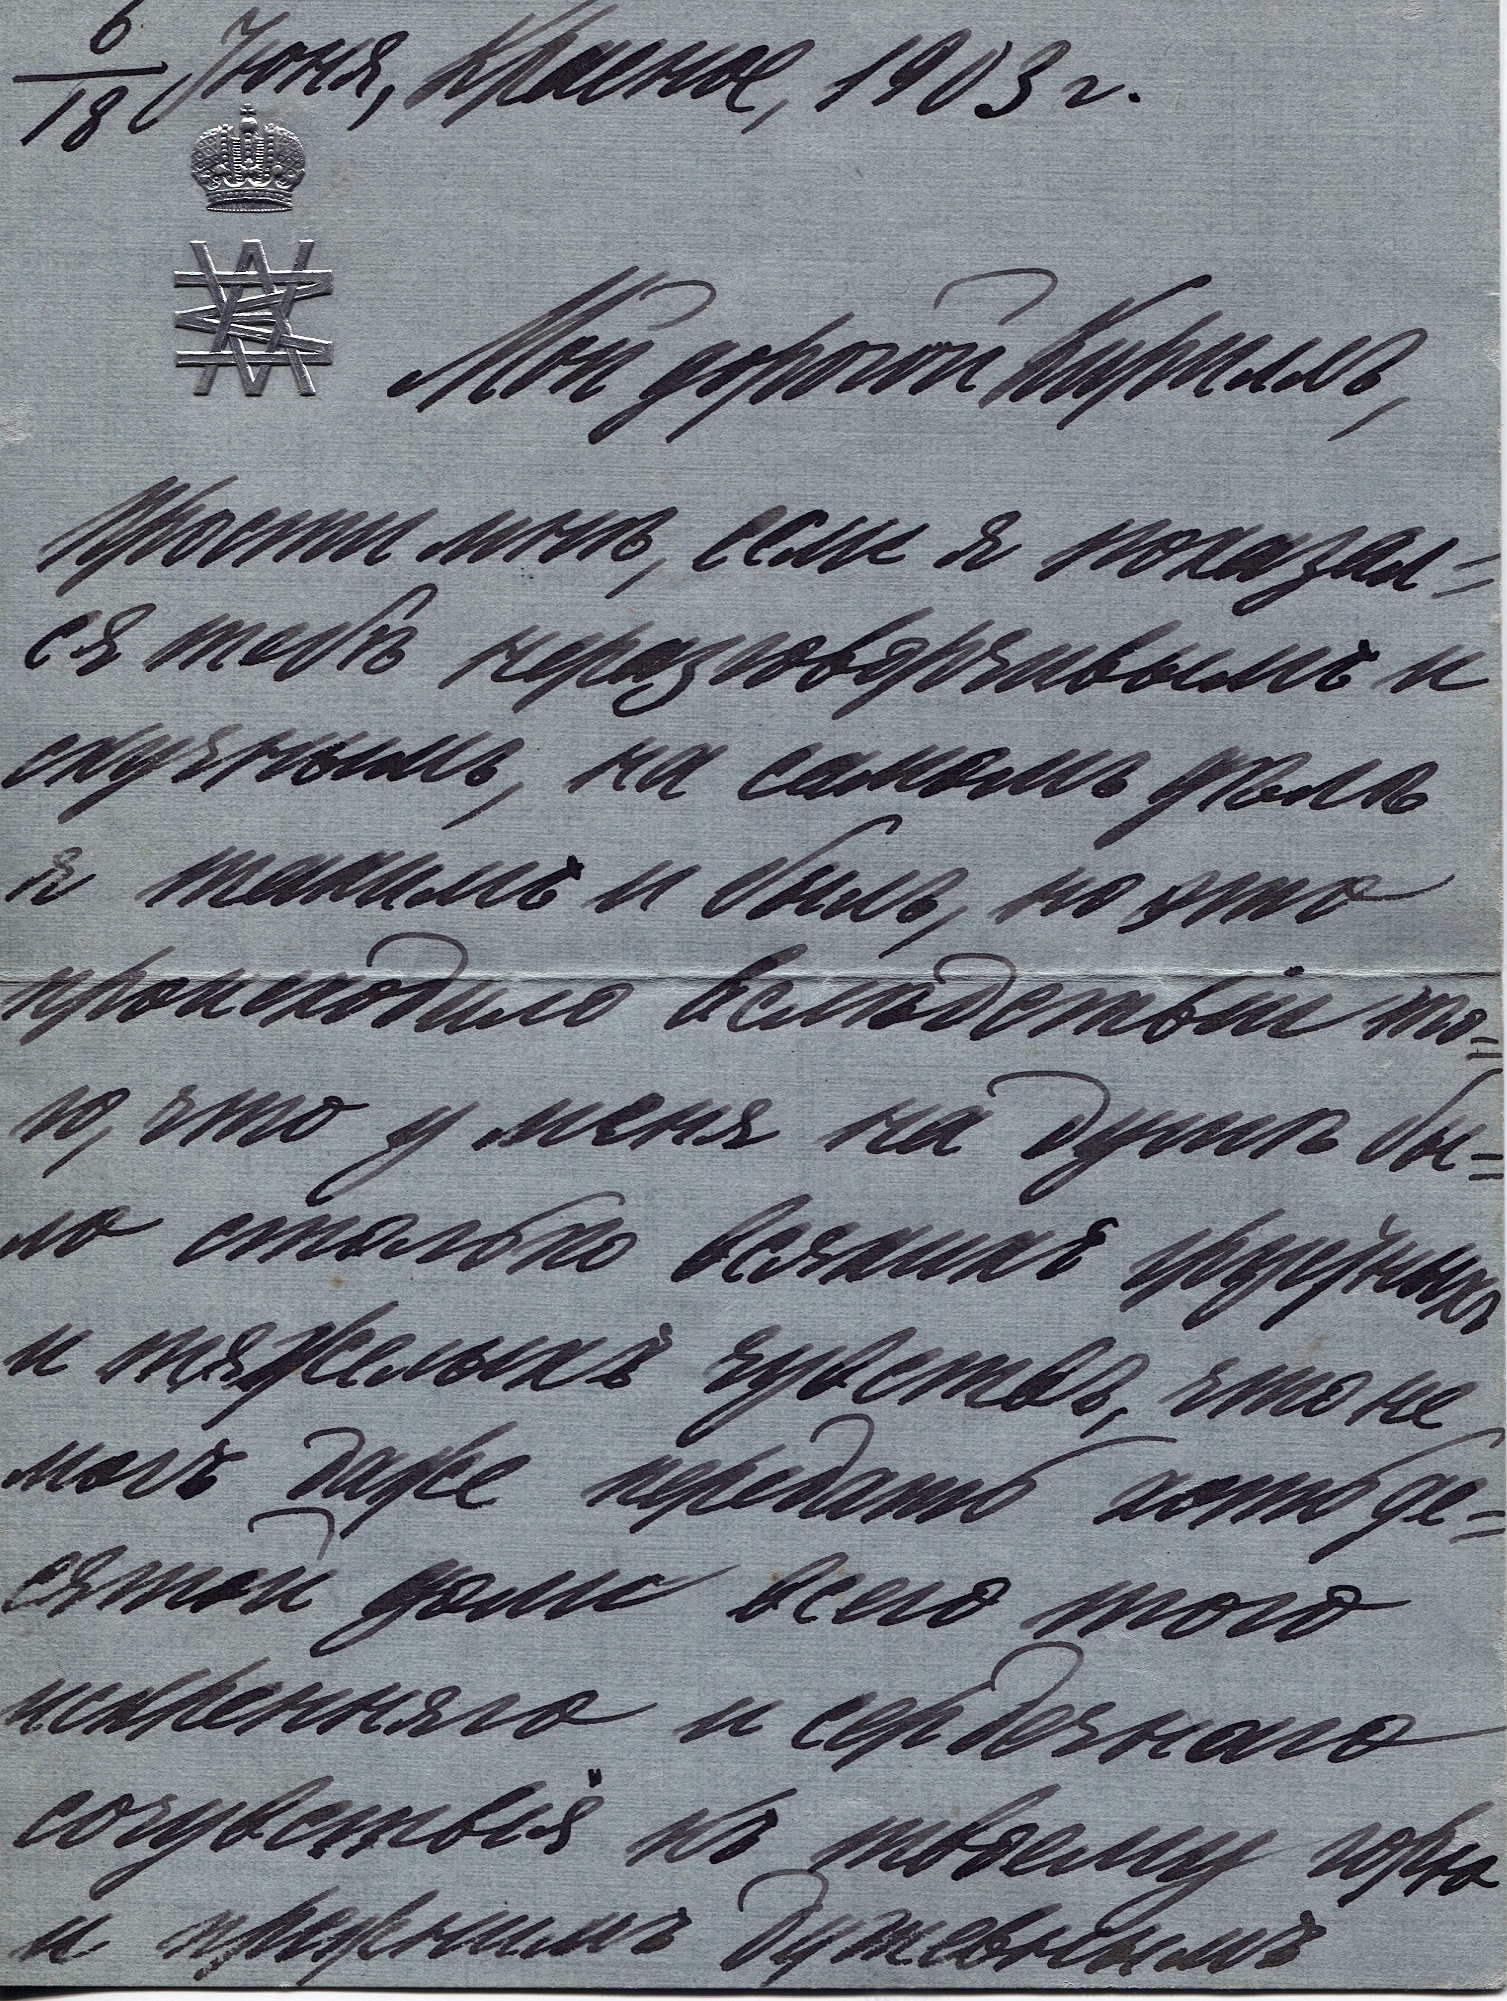 6/18 Іюня, Красное, 1903 г.
Мой дорогой Кириллъ,
Прости мнѣ, если я показал=
ся тебѣ неразговорчивымъ и
скучнымъ, на самомъ дѣлѣ
я такимъ и былъ, но это
происходило вслѣдствіи то=
го, что у меня на душѣ бы=
ло столько всякихъ грустныхъ
и тяжелыхъ чувствъ, что не
могъ даже передать хоть де=
сятой доли всего того
искренняго и сердечнаго
сочувствія къ твоему горю
и прежнимъ душевнымъ